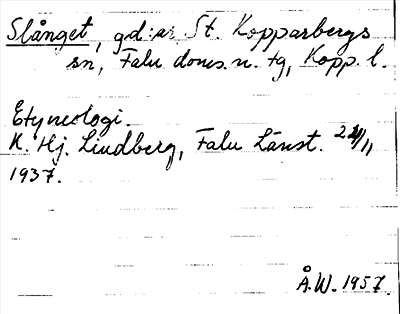 Slånget, gd:ar St. Kopparbergs
sn, Falu doms. n. tg, Kopp. l.
Etymologi.
K. Hj. Lindberg, Falu Länst. /11
1937.
Å.W. 1957.